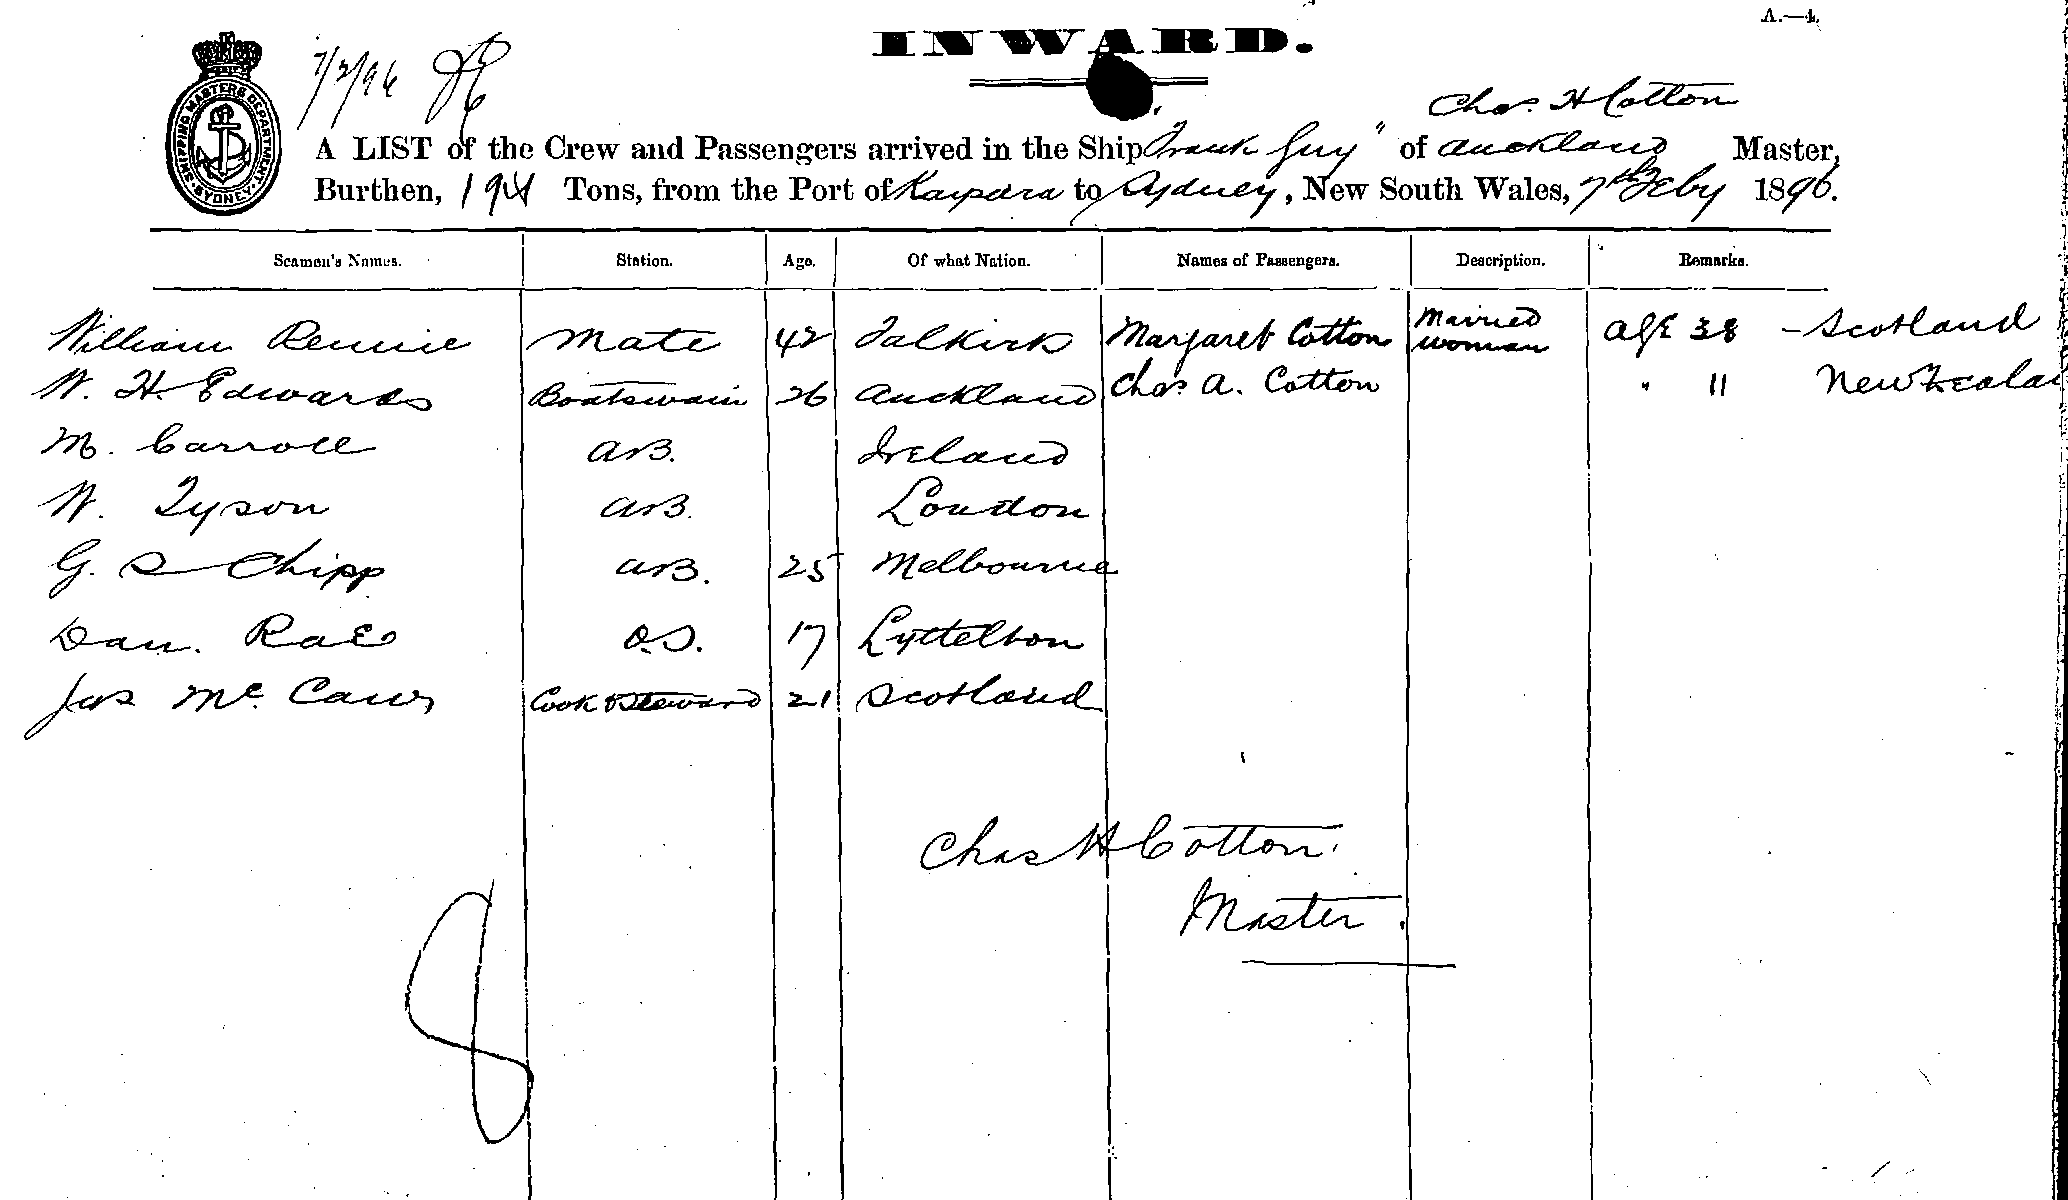 A.—4.
INWARD.
7/2/96
SHIPPING MASTERS DEPARTMENT SYDNEY
Chas. H Cotton
A LIST of the Crew and Passengers arrived in the Ship "Frank Guy" of Auckland Master,
Burthen, 194 Tons, from the Port of Kaipara to Sydney, New South Wales, 7th Feby 1896.
Seamen's Names. Station. Age. Of what Nation. Names of Passengers. Description. Remarks.
William Rennie Mate 42 Falkirk Margaret Cotton Married woman age 38 - Scotland
W. H. Edwards Boatswain 26 Auckland Chas A. Cotton " 11 New Zealan
M. Carroll AB. Ireland
W. Tyson AB. London
G. S Chipp AB. 25 Melbourne
Dan. Rae O.S. 17 Lyttelton
Jas Mc. Caw Cook & Steward 21 Scotland
Chas H Cotton.
Master.
8